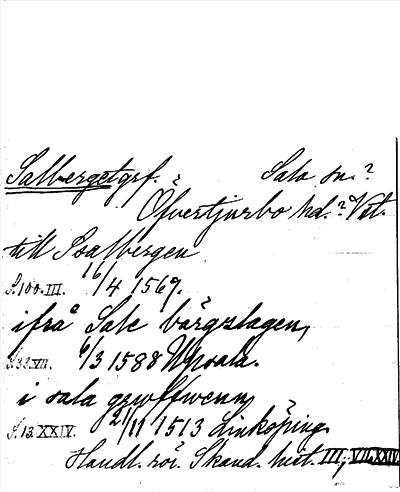 Salberget grf. ? Sala sn. ?
Öfvertjurbo hd. ? Vstl.
till Psalbergen
S. 100. III. 16/4 1569.
ifrå Sale bärgslagen,
S. 33. VII. 6/3 1588 Upsala.
i sala grwffwenn,
S. 13. XXIV. 21/11 1513 Linköping.
Handl. rör. Skand. hist. III, VII, XXIV